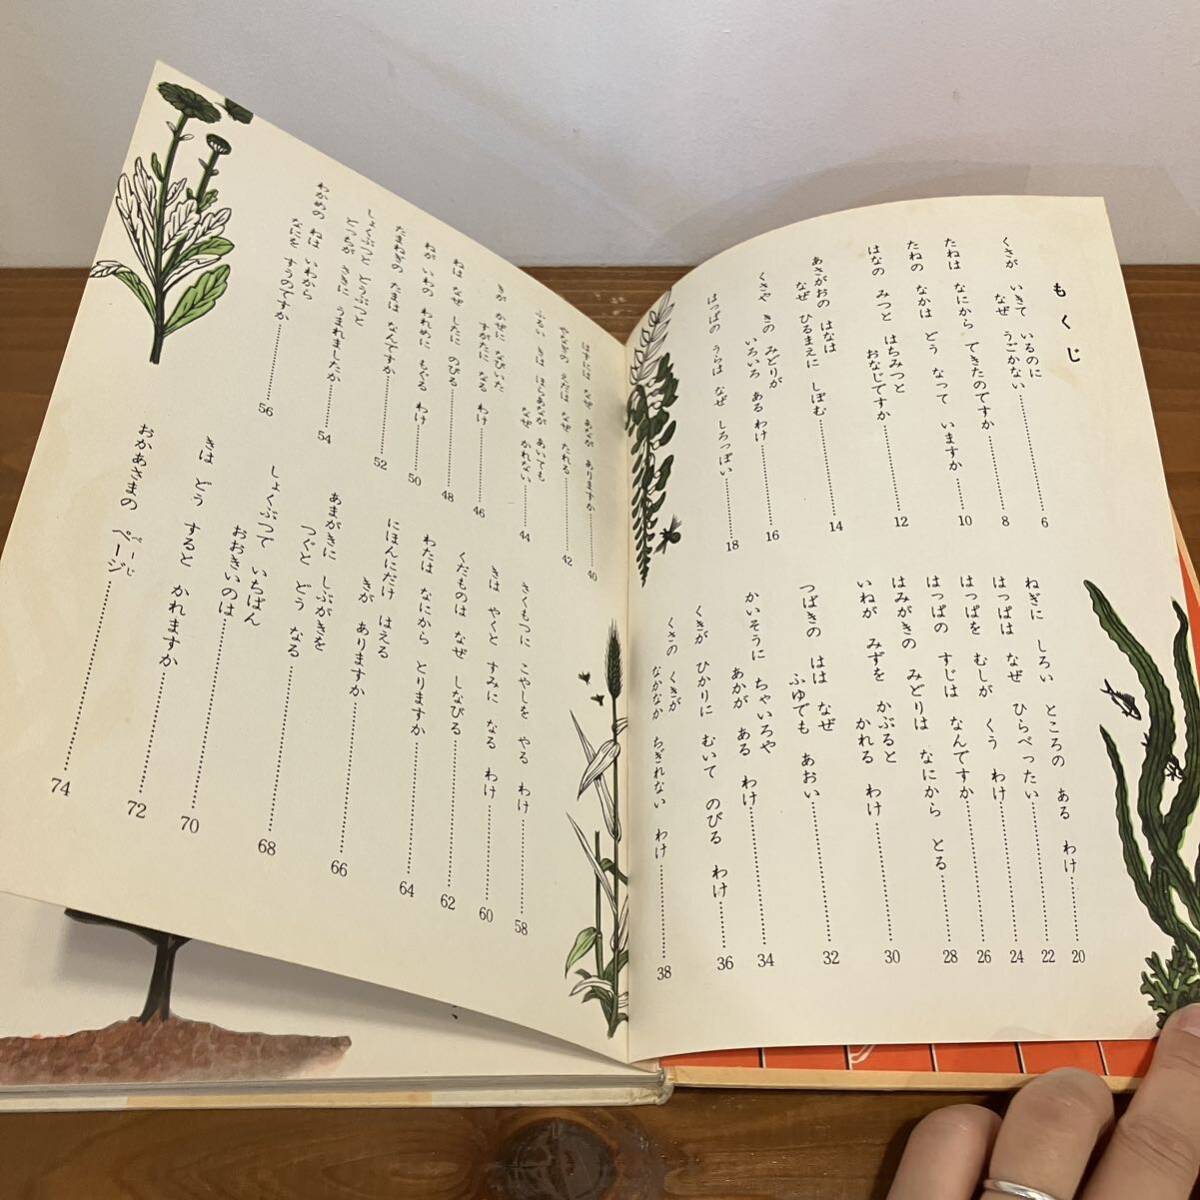 もくじ
くさが いきて いるのに
なぜ うごかない……6
たねは なにから できたのですか……8
たねの なかは どう なって いますか……10
はなの みつと はちみつと
おなじですか……12
あさがおの はなは
なぜ ひるまえに しぼむ……14
くさや きの みどりが
いろいろ ある わけ……16
はっぱの うらは なぜ しろっぽい……18
ねぎに しろい ところの ある わけ……20
はっぱは なぜ ひらべったい……22
はっぱを むしが くう わけ……24
はっぱの すじは なんですか……26
はみがきの みどりは なにから とる……28
いねが みずを かぶると
かれる わけ……30
つばきの はは なぜ
ふゆでも あおい……32
かいそうに ちゃいろや
あかが ある わけ……34
くきが ひかりに むいて のびる わけ……36
くさの くきが
なかなか ちぎれない わけ……38
はすには なぜ あなが ありますか……40
やなぎの えだは なぜ たれる……42
ふるい きは はしあなが あいても
なぜ かれない……44
きが かぜに なびいた
すがたに なる わけ……46
ねは なぜ したに のびる……48
ねが いわの われめに もぐる わけ……50
たまねぎの たまは なんですか……52
しょくぶつと どうぶつと
どっちが さきに うまれましたか……54
わかめの ねは いわから
なにを すうのですか……56
さくもつに こやしを やる わけ……58
きは やくと すみに なる わけ……60
くだものは なぜ しなびる……62
わたは なにから とりますか……64
にほんにだけ はえる
きが ありますか……66
あまがきに しぶがきを
つぐと どう なる……68
しょくぶつで いちばん
おおきいのは……70
きは どう すると かれますか……72
おかあさまの ページ……74
ぺーじ